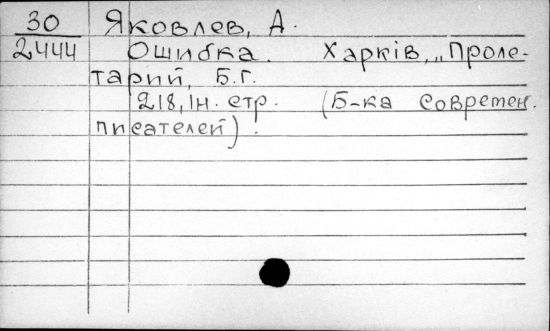 30 Яковлев, А.
2444 Ошибка. Харків, „Проле-
тарий, Б.Г.
218, Iн. стр. (Б-ка современ.
писателей).